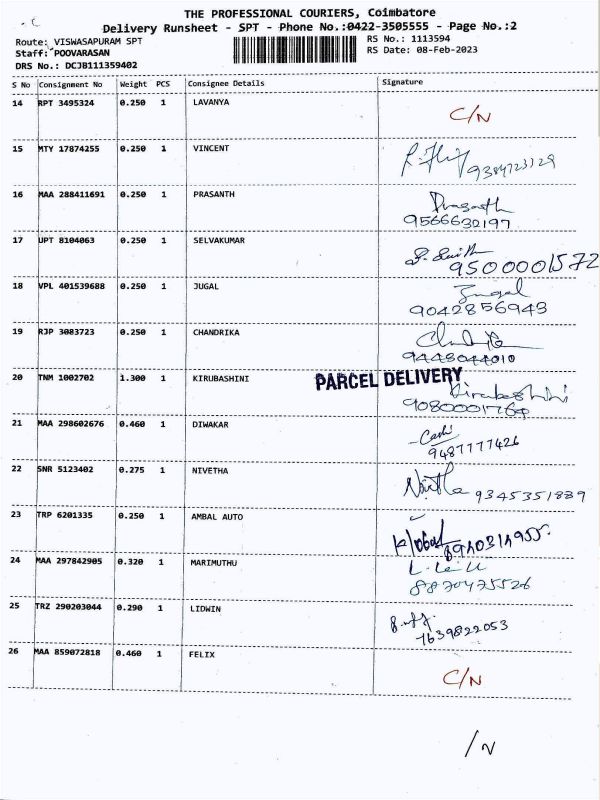 THE PROFESSIONAL COURIERS, Coimbatore
Delivery Runsheet - SPT - Phone No.:0422-3505555 - Page No.:2
Route: VISWASAPURAM SPT
RS No.: 1113594
Staff: POOVARASAN
RS Date: 08-Feb-2023
DRS No.: DCJB111359402
S No Consignment No Weight PCS Consignee Details Signature
14 RPT 3495324 0.250 1 LAVANYA C/N
15 MTY 17874255 0.250 1 VINCENT
9384723129
16 MAA 288411691 0.250 1 PRASANTH Prasanth
9566632197
17 UPT 8104063 0.250 1 SELVAKUMAR
9500001572
18 VPL 401539688 0.250 1 JUGAL Jugal
9042856943
19 RJP 3083723 0.250 1 CHANDRIKA
9448044010
20 TNM 1002702 1.300 1 KIRUBASHINI PARCEL DELIVERY
Kirubashini
21 MAA 298602676 0.460 1 DIWAKAR
9487777426
22 SNR 5123402 0.275 1 NIVETHA
9345351889
23 TRP 6201335 0.250 1 AMBAL AUTO
24 MAA 297842905 0.320 1 MARIMUTHU
8870475526
25 TRZ 290203044 0.290 1 LIDWIN
7639822053
26 MAA 859072818 0.460 1 FELIX C/N
/N